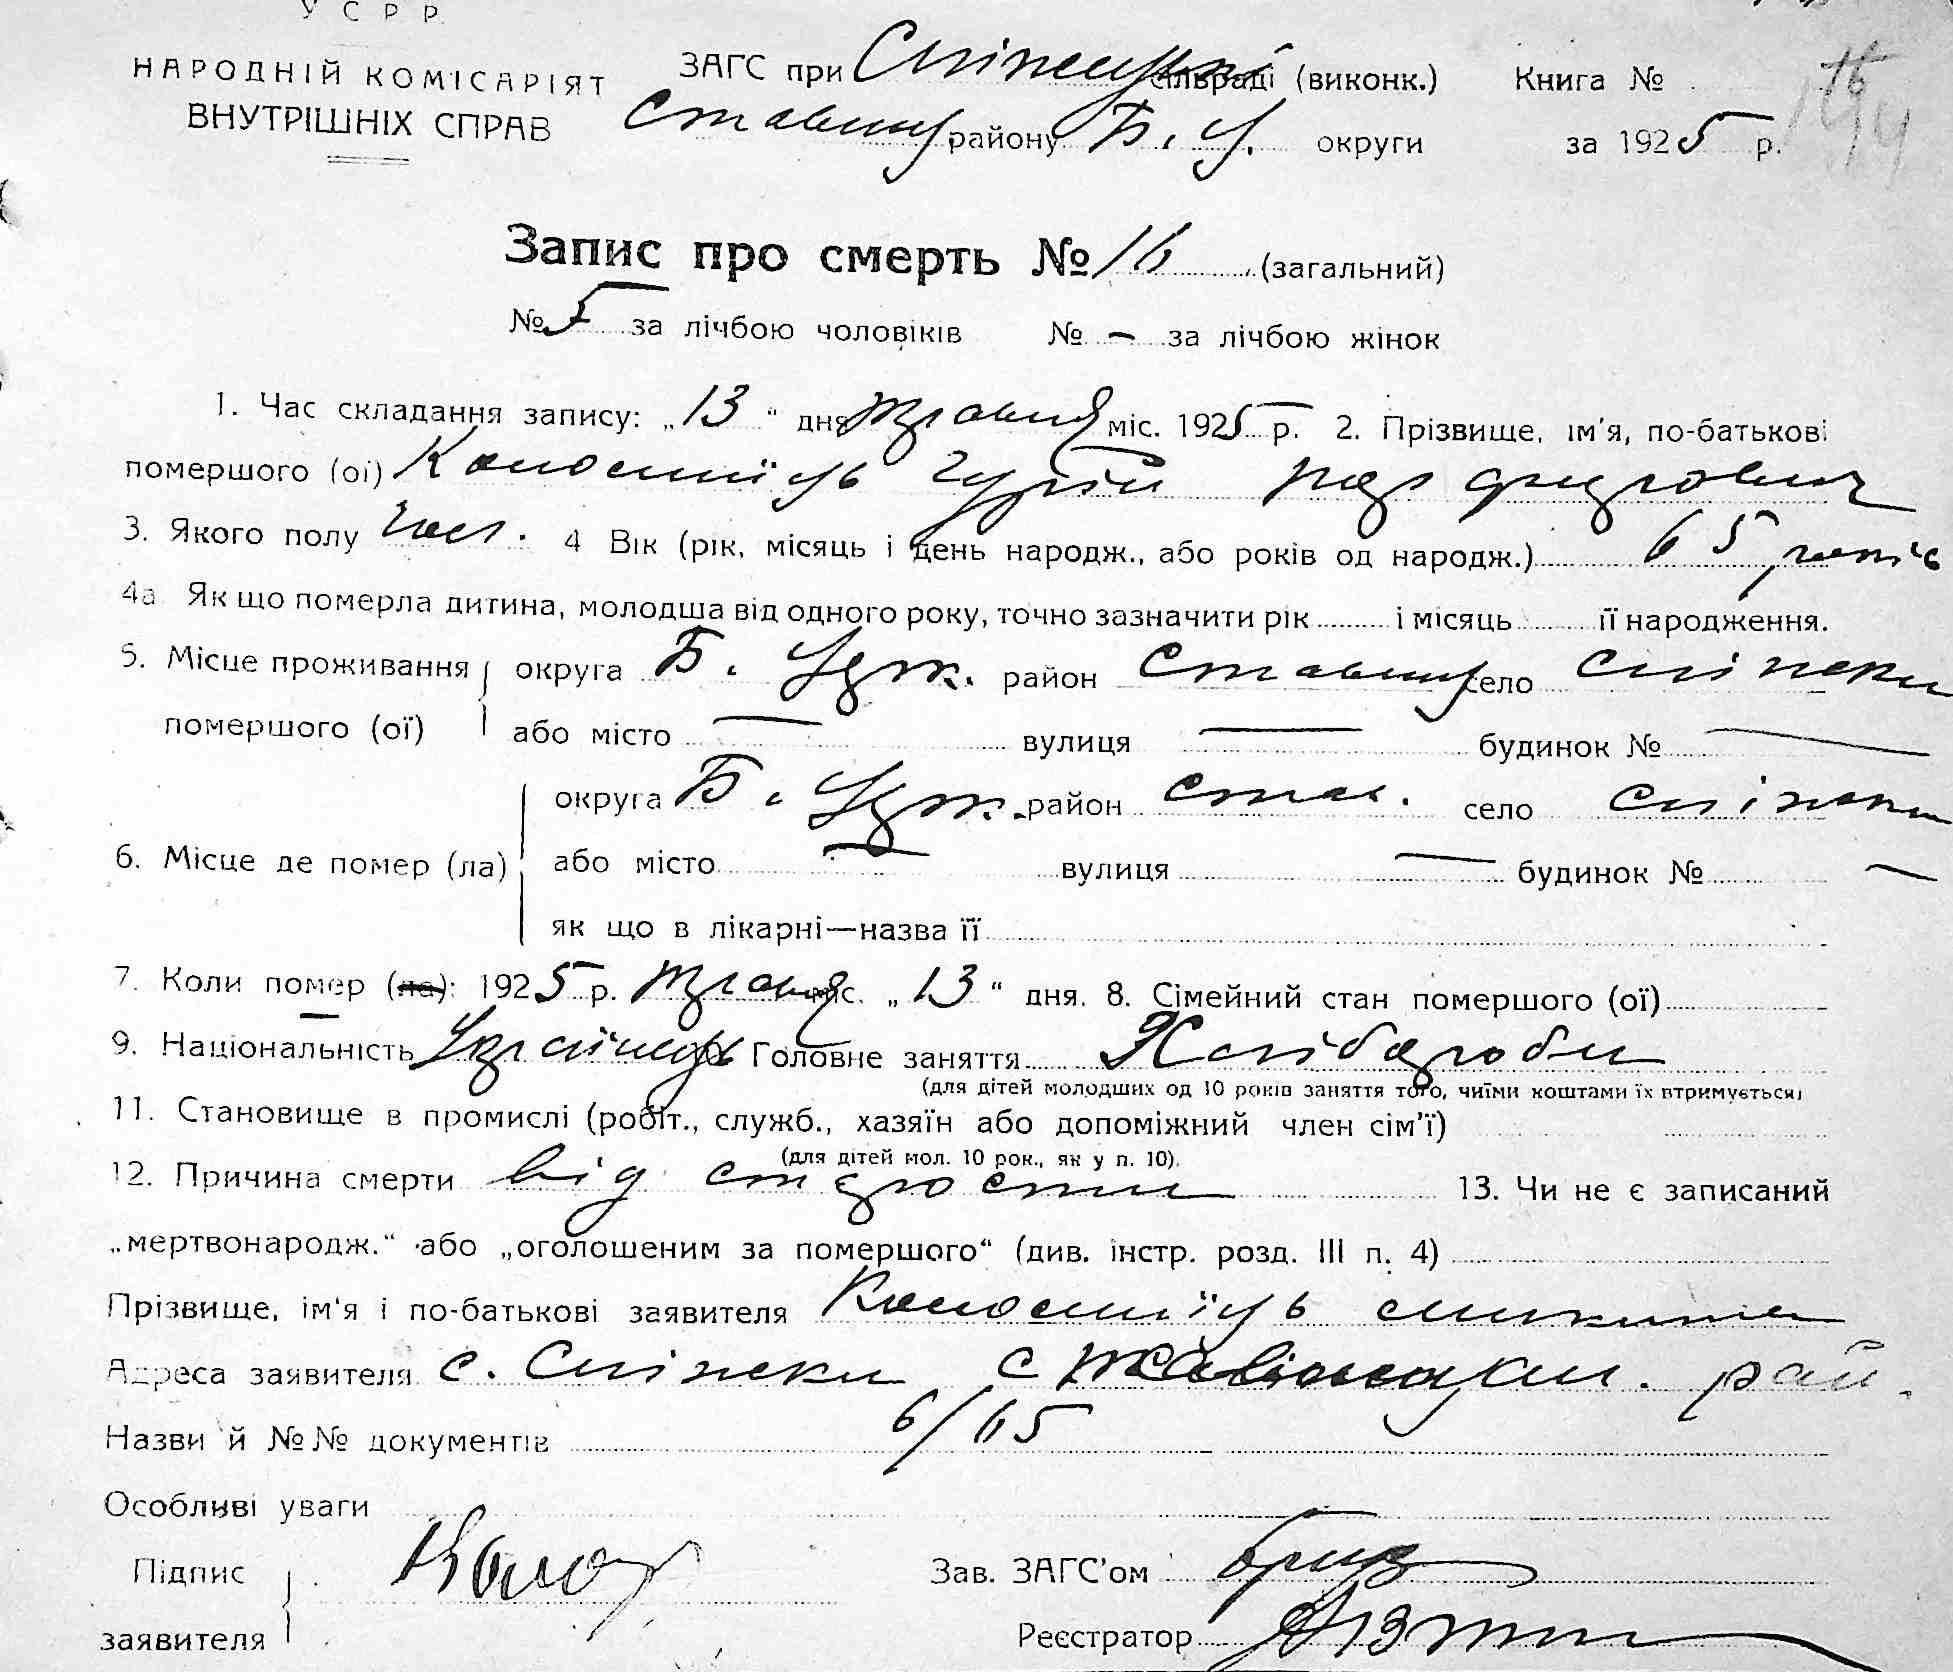 У С Р Р
НАРОДНІЙ КОМІСАРІЯТ
ВНУТРІШНІХ СПРАВ
ЗАГС при сільраді (виконк.) Книга №
району Б. У. округи за 1925 р.
Запис про смерть № 16 (загальний)
№ 5 за лічбою чоловіків № – за лічбою жінок
1. Час складання запису: „13“ дня травня міс. 1925 р. 2. Прізвище, ім'я, по-батькові
помершого (ої) Гурій
3. Якого полу чол. 4 Вік (рік, місяць і день народж., або років од народж.) 65 років
4а Як що померла дитина, молодша від одного року, точно зазначити рік і місяць її народження.
5. Місце проживання округа Б. Церк. район село Сніжки
помершого (ої) або місто — вулиця — будинок № —
округа Б. Церк. район Став. село Сніжки
6. Місце де помер (ла) або місто — вулиця — будинок № —
як що в лікарні—назва її
7. Коли помер (ла): 1925 р. травня міс. „13“ дня. 8. Сімейний стан помершого (ої)
9. Національність Українець Головне заняття Хлібороби
(для дітей молодших од 10 років заняття того, чиїми коштами їх втримується)
11. Становище в промислі (робіт., служб., хазяїн або допоміжний член сім'ї)
(для дітей мол. 10 рок., як у п. 10).
12. Причина смерти від старости 13. Чи не є записаний
„мертвонародж.“ або „оголошеним за помершого“ (див. інстр. розд. III п. 4)
Прізвище, ім'я і по-батькові заявителя
Адреса заявителя с. Сніжки рай.
Назви й №№ документів 6/65
Особливі уваги
Підпис Зав. ЗАГС'ом
заявителя Реєстратор